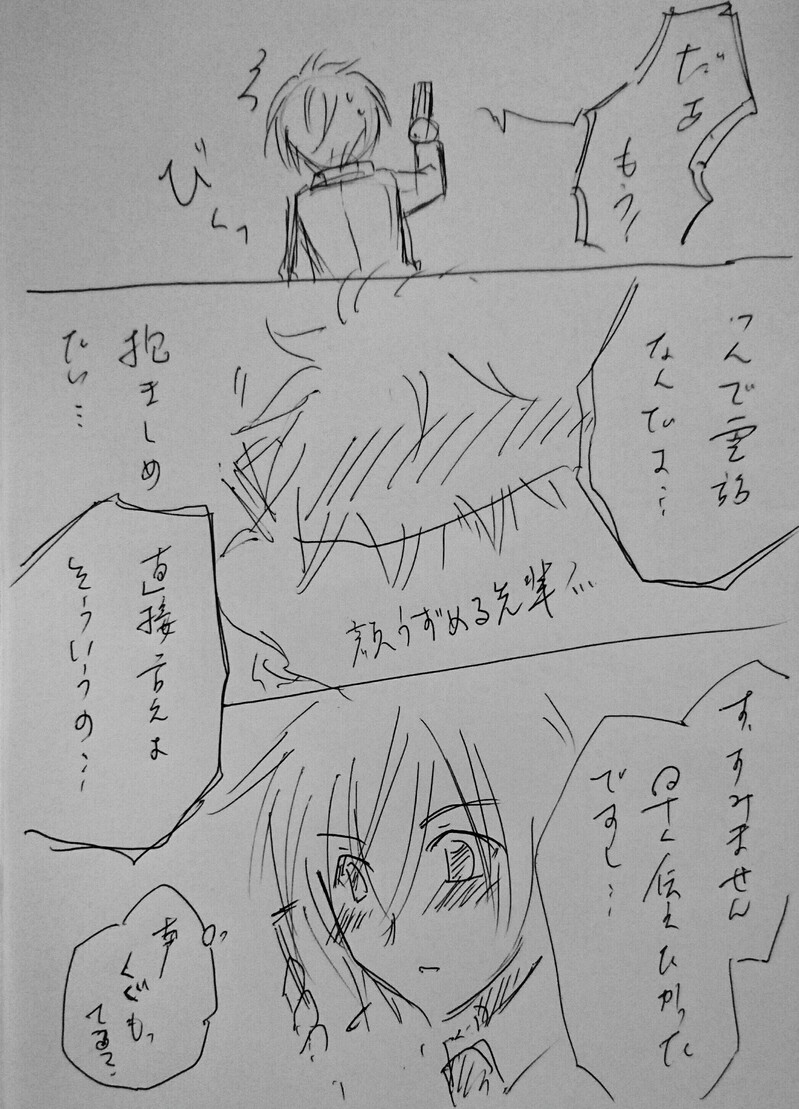 だぁ
もう!
びくっ
なんで電話
なんだよ…
抱きしめ
たい…
顔うずめる先輩
直接言えよ
そういうの…
す、すみません
早く伝えたかった
ですし…
声
くぐもっ
てる?